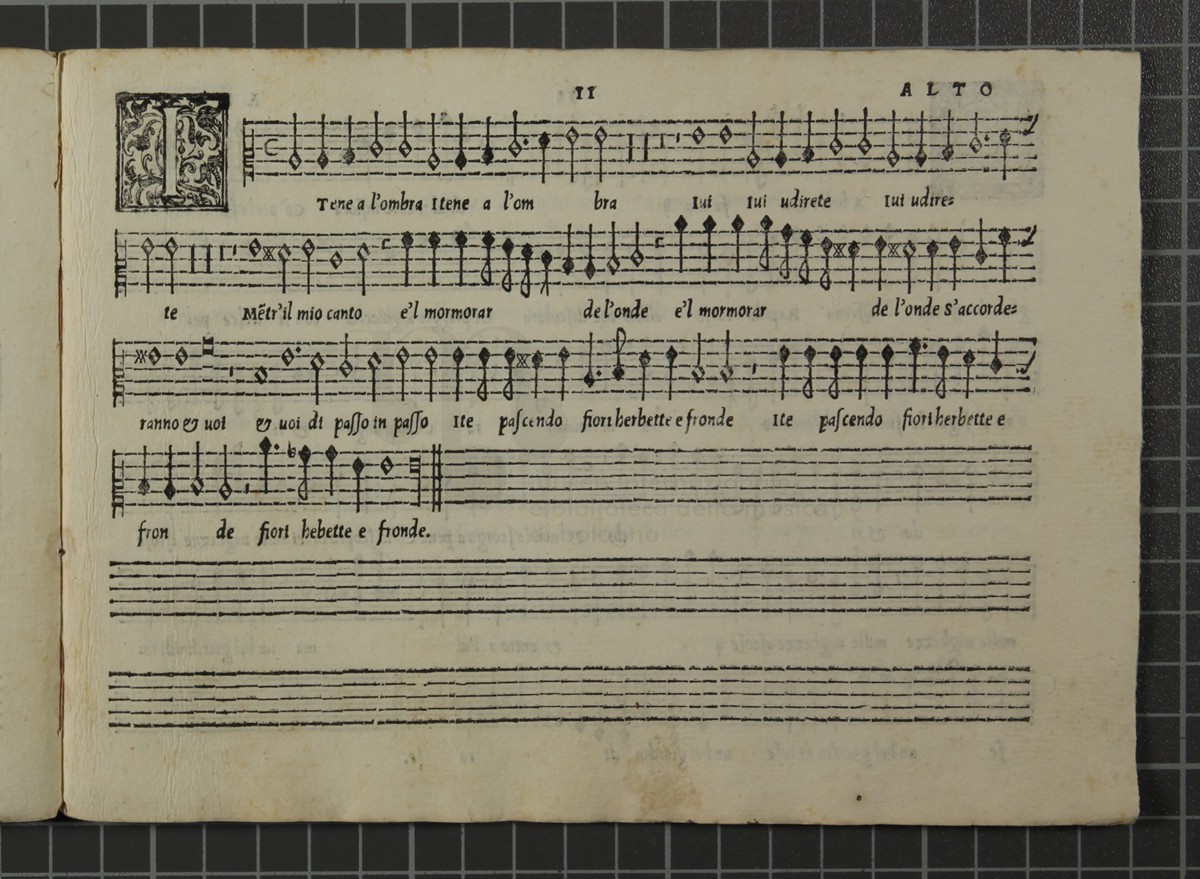 11
ALTO
ITene a l'ombra Itene a l'om bra Iui Iui udirete Iui udire=
te Mẽtr'il mio canto e'l mormorar de l'onde e'l mormorar de l'onde s'accorde=
ranno & uoi & uoi di paſſo in paſſo Ite paſcendo fiori herbette e fronde Ite paſcendo fiori herbette e
fron de fiori hebette e fronde.